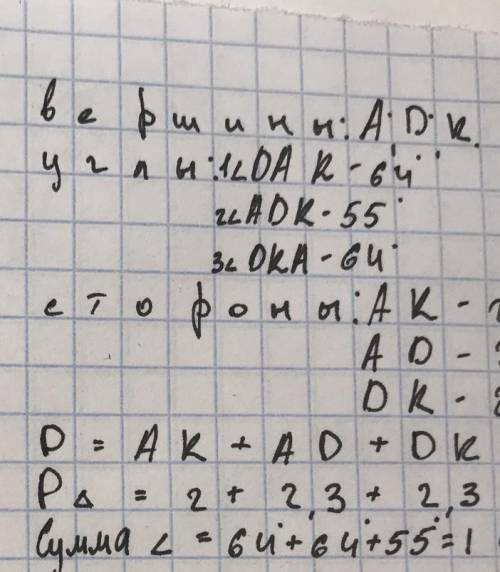 вершины: A. D. K.
углы: 1∠DAK - 64°
2∠ADK - 55°
3∠DKA - 64°
стороны: AK -
AD -
DK -
P = AK + AD + DK
P△ = 2 + 2,3 + 2,3
Сумма ∠ = 64° + 64° + 55° = 1